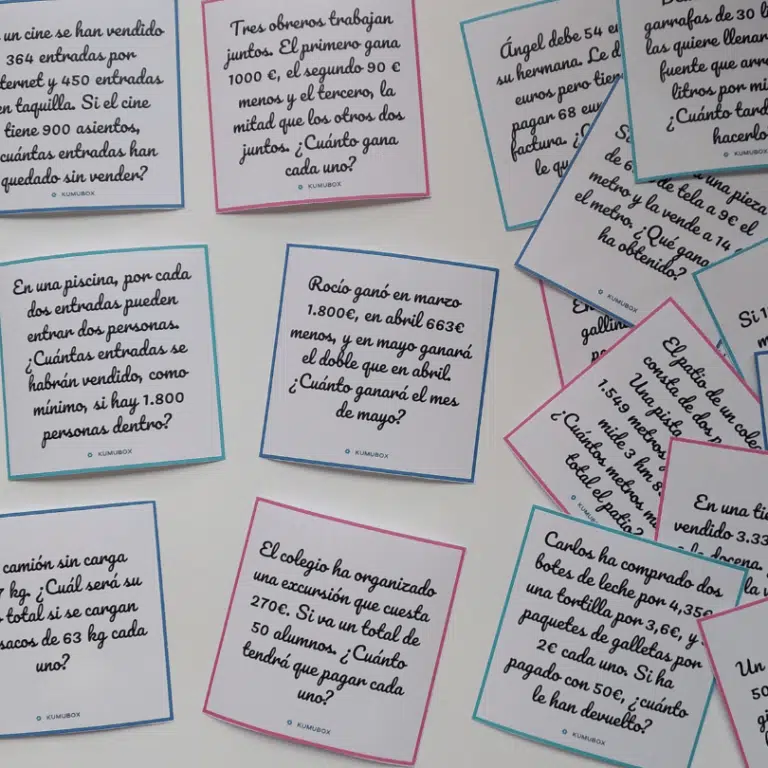 un cine se han vendido
364 entradas por
450 entradas
taquilla. Si el cine
tiene 900 asientos,
cuántas entradas han
quedado sin vender?
KUMUBOX
Tres obreros trabajan
juntos. El primero gana
1000 €, el segundo 90 €
menos y el tercero, la
mitad que los otros dos
juntos. ¿Cuánto gana
cada uno?
KUMUBOX
Ángel debe 54
su hermana. Le
euros pero
pagar 68
factura.
le
garrafas de 30
las quiere llenar
fuente que
litros por
¿Cuánto
hacerlo
KUMUBOX
una pieza
de tela a 9€ el
metro y la vende a 14
el metro. ¿Qué
ha obtenido?
KUMUBOX
En una piscina, por cada
dos entradas pueden
entrar dos personas.
¿Cuántas entradas se
habrán vendido, como
mínimo, si hay 1.800
personas dentro?
KUMUBOX
Rocío ganó en marzo
1.800€, en abril 663€
menos, y en mayo ganará
el doble que en abril.
¿Cuánto ganará el mes
de mayo?
KUMUBOX
Si
El patio de un
consta de dos
Una pista
1.549 metros
mide 3 km
¿Cuántos metros
total el patio?
En una
vendido
docena.
la
camión sin carga
kg. ¿Cuál será su
total si se cargan
sacos de 63 kg cada
uno?
KUMUBOX
El colegio ha organizado
una excursión que cuesta
270€. Si va un total de
50 alumnos. ¿Cuánto
tendrá que pagar cada
uno?
KUMUBOX
Carlos ha comprado dos
botes de leche por 4,35€
una tortilla por 3,6€, y
paquetes de galletas por
2€ cada uno. Si ha
pagado con 50€, ¿cuánto
le han devuelto?
KUMUBOX
Un